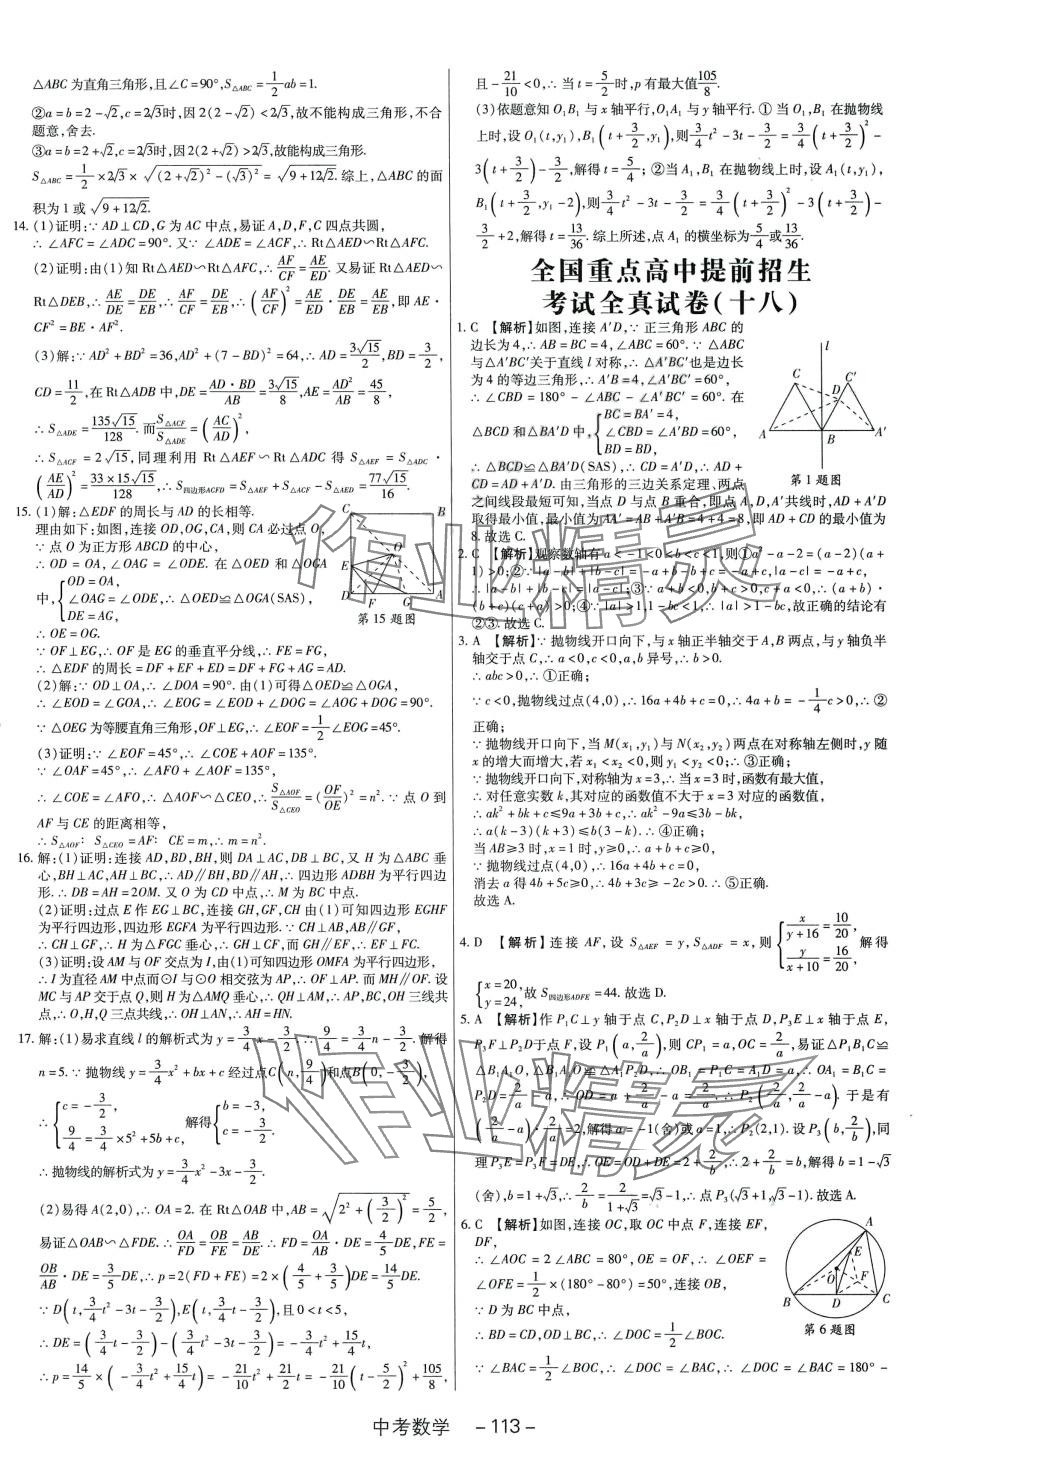 △ABC为直角三角形,且∠C=90°,S△ABC=1/2ab=1.
②a=b=2-√2,c=2√3时,因2(2-√2)<2√3,故不能构成三角形,不合
题意,舍去.
③a=b=2+√2,c=2√3时,因2(2+√2)>2√3,故能构成三角形.
S△ABC=1/2×2√3×√((2+√2)²-(√3)²)=√(9+12√2). 综上,△ABC的面
积为1或√(9+12√2).
14.(1)证明:∵AD⊥CD,G为AC中点,易证A,D,F,C四点共圆,
∴∠AFC=∠ADC=90°.又∵∠ADE=∠ACF,∴Rt△AED∽Rt△AFC.
(2)证明:由(1)知Rt△AED∽Rt△AFC,∴AF/CF=AE/ED.又易证Rt△AED∽
Rt△DEB,∴AE/DE=DE/EB,∴AF/CF=DE/EB,∴(AF/CF)²=AE/ED·DE/EB=AE/EB,即AE·
CF²=BE·AF².
(3)解:∵AD²+BD²=36,AD²+(7-BD)²=64,∴AD=3√15/2,BD=3/2,
CD=11/2,在Rt△ADB中,DE=AD·BD/AB=3√15/8,AE=AD²/AB=45/8,
∴S△ADE=135√15/128.而S△ACF/S△ADE=(AC/AD)²,
∴S△ACF=2√15,同理利用Rt△AEF∽Rt△ADC得S△AEF=S△ADC·
(AE/AD)²=33×15√15/128,∴S四边形ACFD=S△AEF+S△ACF-S△AED=77√15/16.
15.(1)解:△EDF的周长与AD的长相等.
理由如下:如图,连接OD,OG,CA,则CA必过点O,
∵点O为正方形ABCD的中心,
∴OD=OA,∠OAG=∠ODE.在△OED和△OGA
中,{OD=OA,
∠OAG=∠ODE,∴△OED≌△OGA(SAS),
DE=AG,
∴OE=OG.
C B
O
E
D F G A
第15题图
∵OF⊥EG,∴OF是EG的垂直平分线,∴FE=FG,
∴△EDF的周长=DF+EF+ED=DF+FG+AG=AD.
(2)解:∵OD⊥OA,∴∠DOA=90°.由(1)可得△OED≌△OGA,
∴∠EOD=∠GOA,∴∠EOG=∠EOD+∠DOG=∠AOG+DOG=90°.
∵△OEG为等腰直角三角形,OF⊥EG,∴∠EOF=1/2∠EOG=45°.
(3)证明:∵∠EOF=45°,∴∠COE+AOF=135°.
∵∠OAF=45°,∴∠AFO+∠AOF=135°,
∴∠COE=∠AFO,∴△AOF∽△CEO,∴S△AOF/S△CEO=(OF/OE)²=n².∵点O到
AF与CE的距离相等,
∴S△AOF:S△CEO=AF:CE=m,∴m=n².
16.解:(1)证明:连接AD,BD,BH,则DA⊥AC,DB⊥BC,又H为△ABC垂
心,BH⊥AC,AH⊥BC,∴AD∥BH,BD∥AH,∴四边形ADBH为平行四边
形.∴DB=AH=2OM.又O为CD中点,∴M为BC中点.
(2)证明:过点E作EG⊥BC,连接GH,GF,CH由(1)可知四边形EGHF
为平行四边形,四边形EGFA为平行四边形.∵CH⊥AB,AB∥GF,
∴CH⊥GF,∴H为△FGC垂心,∴GH⊥CF,而GH∥EF,∴EF⊥FC.
(3)证明:设AM与OF交点为I,由(1)可知四边形OMFA为平行四边形,
∴I为直径AM中点而⊙I与⊙O相交弦为AP,∴OF⊥AP.而MH∥OF.设
MC与AP交于点Q,则H为△AMQ垂心,∴QH⊥AM,∴AP,BC,OH三线共
点,∴O,H,Q三点共线,∴OH⊥AN,∴AH=HN.
17.解:(1)易求直线l的解析式为y=3/4x-3/2.∴9/4=3/4n-3/2.解得
n=5.∵抛物线y=3/4x²+bx+c经过点C(n,9/4)和点B(0,-3/2),
∴{c=-3/2,
9/4=3/4×5²+5b+c,解得{b=-3,
c=-3/2.
∴抛物线的解析式为y=3/4x²-3x-3/2.
(2)易得A(2,0),∴OA=2.在Rt△OAB中,AB=√(2²+(3/2)²)=5/2,
易证△OAB∽△FDE.∴OA/FD=OB/FE=AB/DE.∴FD=OA/AB·DE=4/5DE,FE=
OB/AB·DE=3/5DE,∴p=2(FD+FE)=2×(4/5+3/5)DE=14/5DE.
∵D(t,3/4t²-3t-3/2),E(t,3/4t-3/2),且0<t<5,
∴DE=(3/4t-3/2)-(3/4t²-3t-3/2)=-3/4t²+15/4t,
∴p=14/5×(-3/4t²+15/4t)=-21/10t²+21/2t=-21/10(t-5/2)²+105/8,
且-21/10<0,∴当t=5/2时,p有最大值105/8.
(3)依题意知O₁B₁与x轴平行,O₁A₁与y轴平行.①当O₁,B₁在抛物线
上时,设O₁(t,y₁),B₁(t+3/2,y₁),则3/4t²-3t-3/2=3/4(t+3/2)²-
3(t+3/2)-3/2,解得t=5/4;②当A₁,B₁在抛物线上时,设A₁(t,y₁),
B₁(t+3/2,y₁-2),则3/4t²-3t-3/2=3/4(t+3/2)²-3(t+3/2)-
3/2+2,解得t=13/36.综上所述,点A₁的横坐标为5/4或13/36.
全国重点高中提前招生
考试全真试卷(十八)
1.C 【解析】如图,连接A′D,∵正三角形ABC的
边长为4,∴AB=BC=4,∠ABC=60°.∵△ABC
与△A′BC′关于直线l对称,∴△A′BC′也是边长
为4的等边三角形,∴A′B=4,∠A′BC′=60°,
∴∠CBD=180°-∠ABC-∠A′BC′=60°.在
△BCD和△BA′D中,{BC=BA′=4,
∠CBD=∠A′BD=60°,
BD=BD,
∴△BCD≌△BA′D(SAS),∴CD=A′D,∴AD+
CD=AD+A′D.由三角形的三边关系定理、两点
l
C C′
D
A B A′
第1题图
之间线段最短可知,当点D与点B重合,即点A,D,A′共线时,AD+A′D
取得最小值,最小值为AA′=AB+A′B=4+4=8,即AD+CD的最小值为
8.故选C.
2.C 【解析】观察数轴有a<-1<0<b<c<1,则①a²-a-2=(a-2)(a+
1)>0;②∵|a-b|+|b-c|=-a+b-b+c=-a+c,|a-c|=-a+c,
∴|a-b|+|b-c|=|a-c|;③∵a+b<0,b+c>0,c+a<0,∴(a+b)·
(b+c)(c+a)>0;④∵|a|>1,1-bc<1,∴|a|>1-bc,故正确的结论有
②③.故选C.
3.A 【解析】∵抛物线开口向下,与x轴正半轴交于A,B两点,与y轴负半
轴交于点C,∴a<0,c<0,a,b异号,∴b>0.
∴abc>0,∴①正确;
∵c<0,抛物线过点(4,0),∴16a+4b+c=0,∴4a+b=-1/4c>0,∴②
正确;
∵抛物线开口向下,当M(x₁,y₁)与N(x₂,y₂)两点在对称轴左侧时,y随
x的增大而增大,若x₁<x₂<0,则y₁<y₂<0;∴③正确;
∵抛物线开口向下,对称轴为x=3,∴当x=3时,函数有最大值,
∴对任意实数k,其对应的函数值不大于x=3对应的函数值,
∴ak²+bk+c≤9a+3b+c,∴ak²-9a≤3b-bk,
∴a(k-3)(k+3)≤b(3-k).∴④正确;
当AB≥3时,x=1时,y≥0,∴a+b+c≥0,
∵抛物线过点(4,0),∴16a+4b+c=0,
消去a得4b+5c≥0,∴4b+3c≥-2c>0.∴⑤正确.
故选A.
4.D 【解析】连接AF,设S△AEF=y,S△ADF=x,则{x/(y+16)=10/20,
y/(x+10)=16/20,解得
{x=20,
y=24,故S四边形ADFE=44.故选D.
5.A 【解析】作P₁C⊥y轴于点C,P₂D⊥x轴于点D,P₃E⊥x轴于点E,
P₃F⊥P₂D于点F,设P₁(a,2/a),则CP₁=a,OC=2/a,易证△P₁B₁C≌
△B₁A₁O,△B₁A₁O≌△A₁P₂D,∴OB₁=P₁C=A₁D=a,∴OA₁=B₁C=
P₂D=2/a-a,∴OD=a+2/a-a=2/a,∴P₂(2/a,2/a-a).于是有
(2/a-a)·2/a=2,解得a=-1(舍)或a=1,∴P₂(2,1).设P₃(b,2/b),同
理P₃E=P₃F=DE,∴OE=OD+DE=2+2/b,∴2+2/b=b,解得b=1-√3
(舍),b=1+√3,∴2/b=2/(1+√3)=√3-1,∴点P₃(√3+1,√3-1).故选A.
6.C 【解析】如图,连接OC,取OC中点F,连接EF,
DF,
∴∠AOC=2∠ABC=80°,OE=OF,∴∠OEF=
∠OFE=1/2×(180°-80°)=50°,连接OB,
∵D为BC中点,
∴BD=CD,OD⊥BC,∴∠DOC=1/2∠BOC.
A
E
O F
B D C
第6题图
∵∠BAC=1/2∠BOC,∴∠DOC=∠BAC,∴∠DOC=∠BAC=180°-
中考数学 -113-
作业精灵
作业精灵